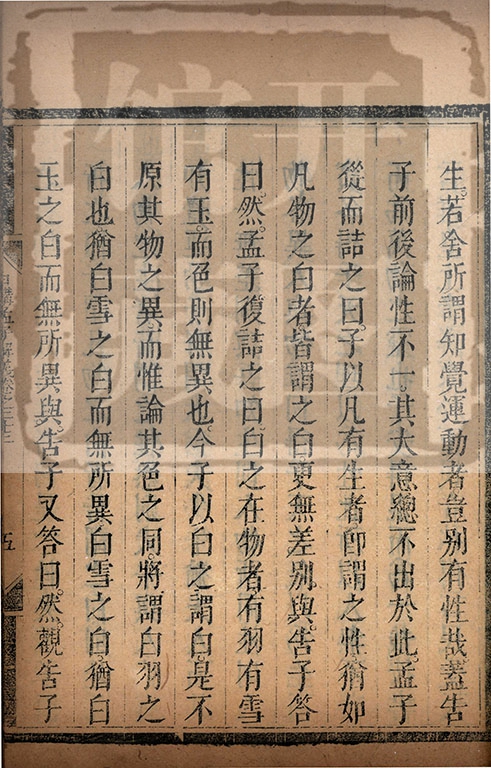 生若舍所謂知覺運動者豈別有性哉蓋告
子前後論性不一其大意總不出於此孟子
從而詰之曰子以凡有生者即謂之性猶如
凡物之白者皆謂之白更無差別與告子答
曰然孟子復詰之曰白之在物者有羽有雪
有玉而色則無異也今子以白之謂白是不
原其物之異而惟論其色之同將謂白羽之
白也猶白雪之白而無所異白雪之白猶白
玉之白而無所異與告子又答曰然觀告子
五